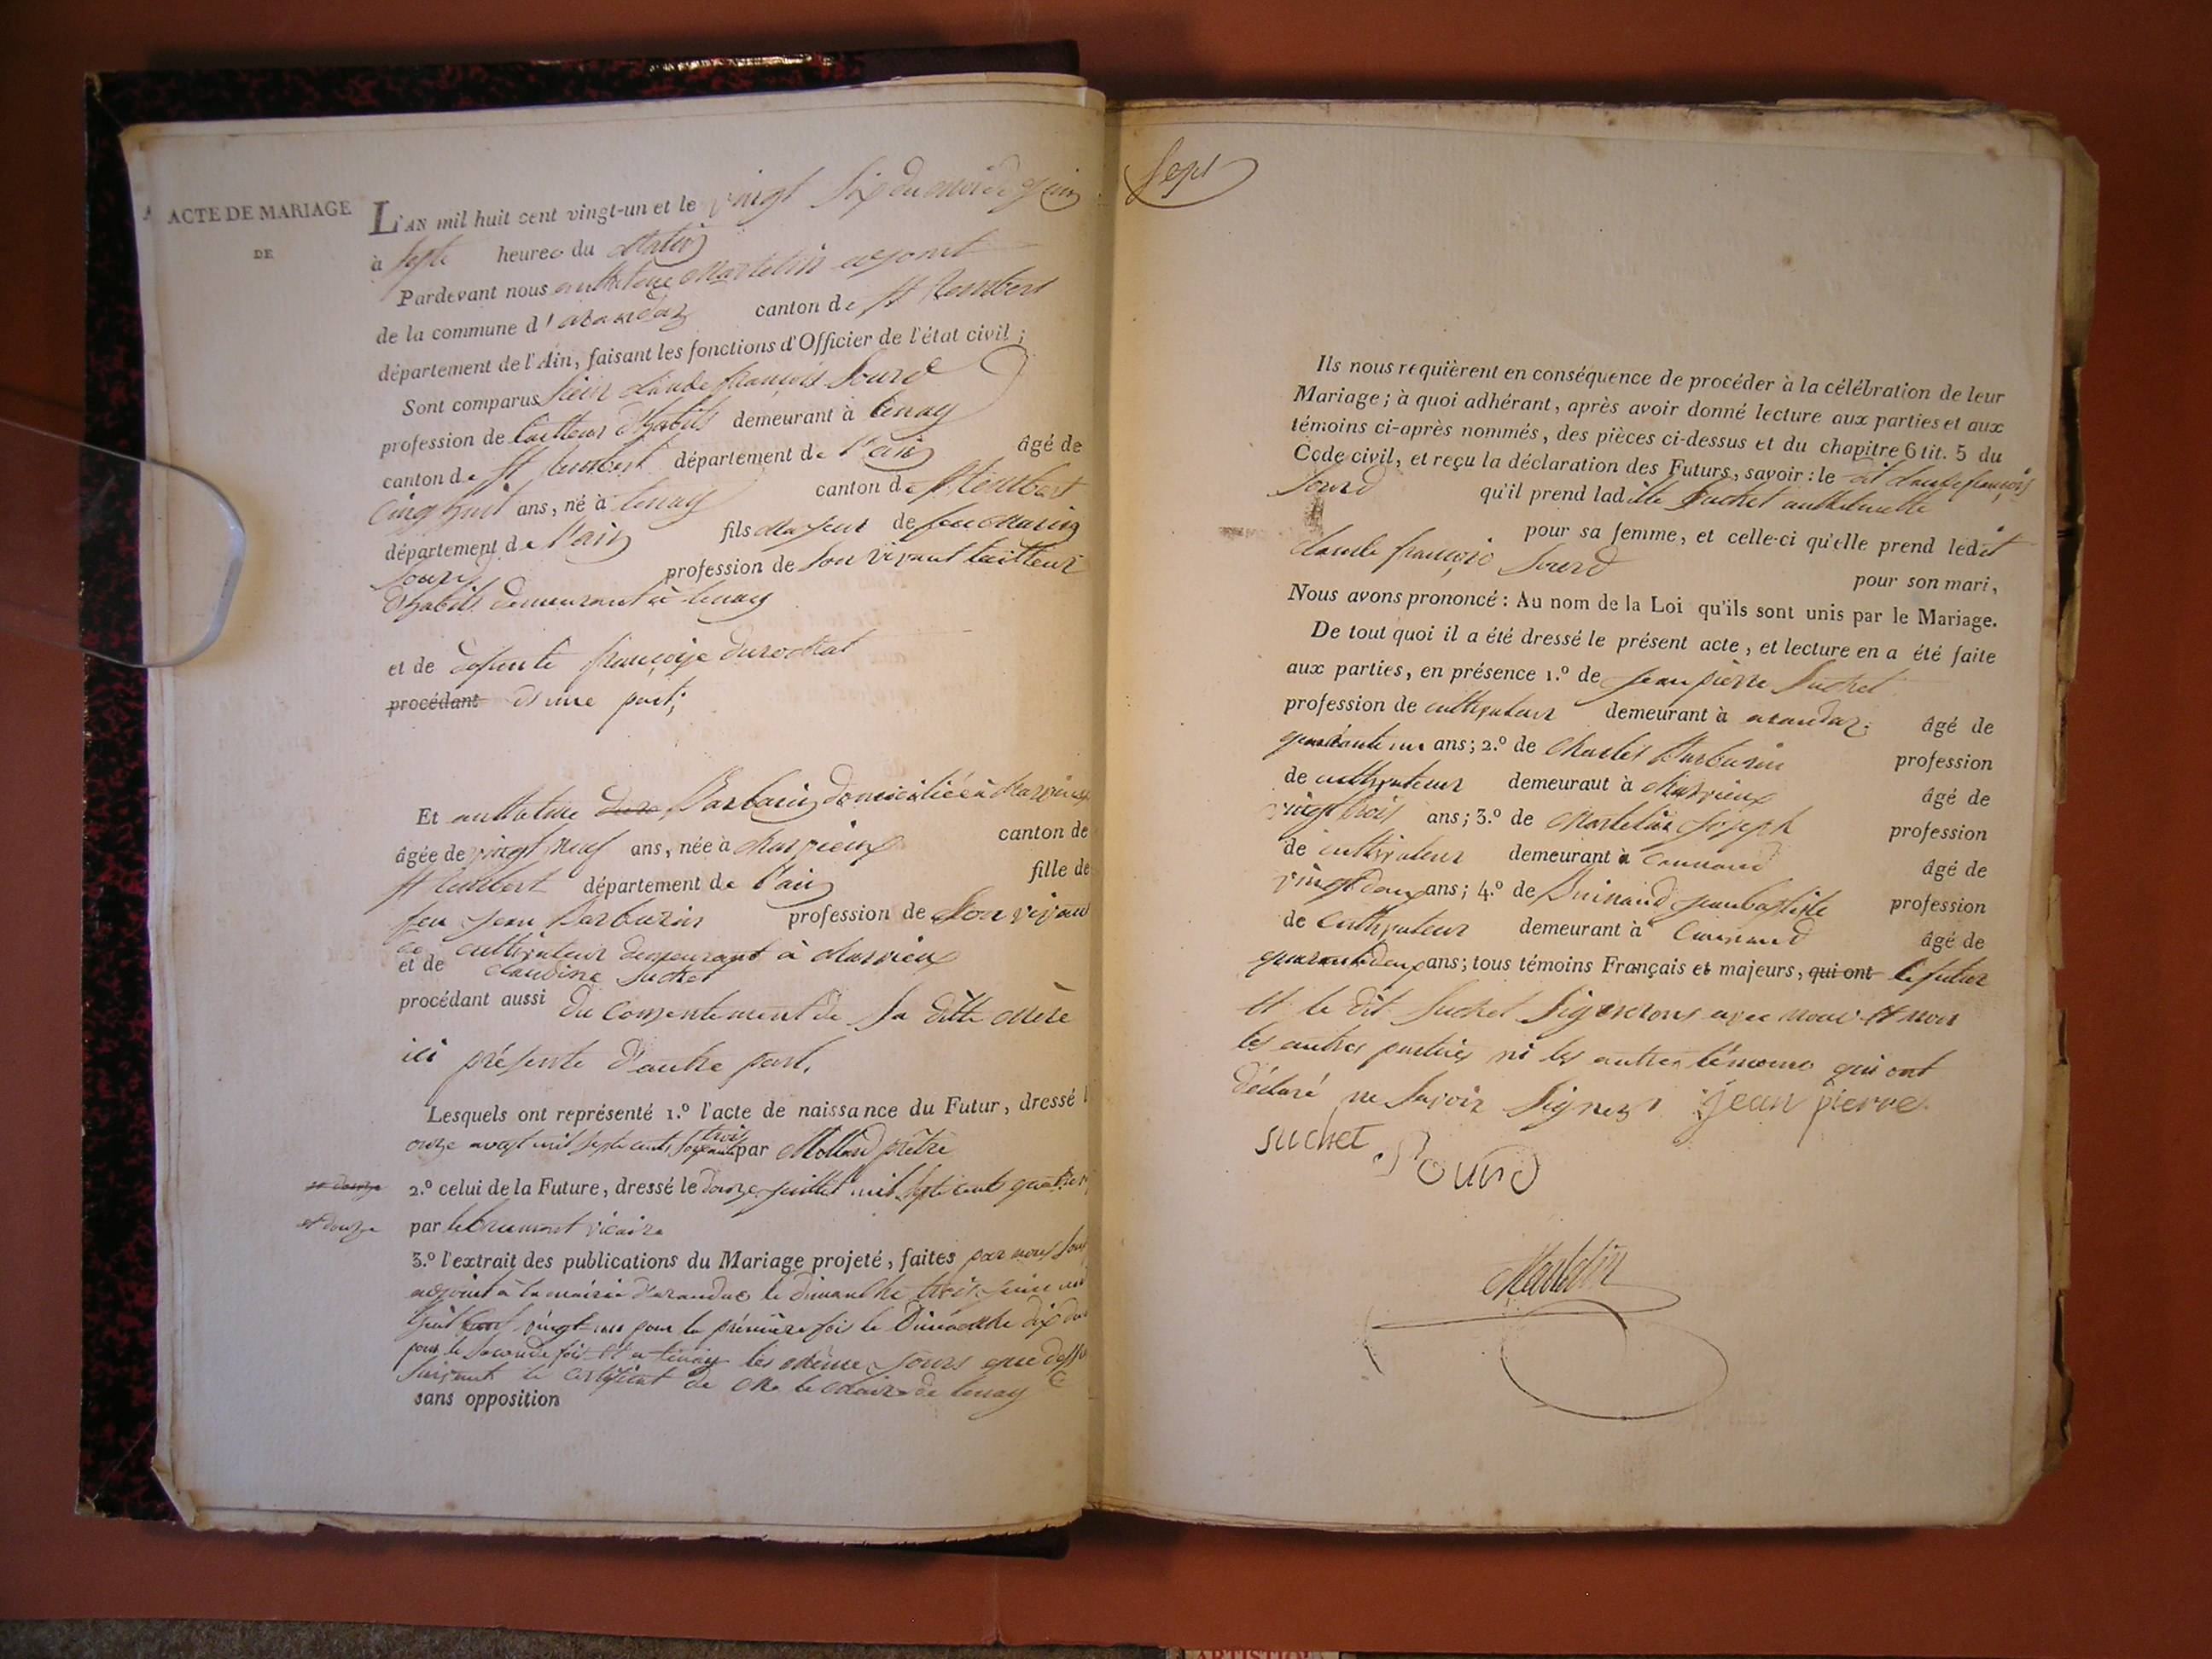 ACTE DE MARIAGE
DE
L'AN mil huit cent vingt-un et le vingt six du mois de juin
à septe heures du matin
Pardevant nous anthelme Martelin adjoint
de la commune d'arandaz canton de St Rembert
département de l'Ain, faisant les fonctions d'Officier de l'état civil ;
Sont comparus sieur claude françois Sourd
profession de tailleur d'habits demeurant à tenay
canton de St rembert département de l'ain âgé de
cinq huit ans, né à tenay canton de St rembert
département de l'ain fils majeur de feu
Sourd profession de Son vivant tailleur
d'habits demeurant à tenay
et de defunte françoise durochat
procédant d'une part;
Et anthelme Barbarin domiciliée à
âgée de vingt neuf ans, née à canton de
St rembert département de l'ain fille de
feu jean Barbarin profession de Son vivant
cultivateur demeurant à
et de claudine Suchet
procédant aussi du consentement de sa ditte mère
ici présente d'autre part.
Lesquels ont représenté 1.º l'acte de naissance du Futur, dressé l
onze avost mil septe cents soixante trois par Molland prêtre
2.º celui de la Future, dressé le douze juillet mil septe cents quatre
et douze
et douze
par vicaire
3.º l'extrait des publications du Mariage projeté, faites par nous
adjoint à la mairie d'arandas le dimanche trois juin mil
huit cent vingt un pour la première fois le Dimanche dix du
pour la Seconde fois et a tenay les même jours que dessu
Suivant le certificat de Mr le maire de tenay
sans opposition
Sept
Ils nous requièrent en conséquence de procéder à la célébration de leur
Mariage ; à quoi adhérant, après avoir donné lecture aux parties et aux
témoins ci-après nommés, des pièces ci-dessus et du chapitre 6 tit. 5 du
Code civil, et reçu la déclaration des Futurs, savoir : le dit claude françois
Sourd qu'il prend laditte Suchet anthelmette
pour sa femme, et celle-ci qu'elle prend ledit
claude françois Sourd pour son mari,
Nous avons prononcé : Au nom de la Loi qu'ils sont unis par le Mariage.
De tout quoi il a été dressé le présent acte, et lecture en a été faite
aux parties, en présence 1.º de jean pierre Suchet
profession de cultivateur demeurant à arandaz. âgé de
quarante un ans ; 2.º de Charles Barbarin profession
de cultivateur demeurant à âgé de
vingt trois ans ; 3.º de Martelin joseph profession
de cultivateur demeurant à âgé de
vingt deux ans ; 4.º de jean baptiste profession
de cultivateur demeurant à âgé de
quarante deux ans ; tous témoins Français et majeurs, qui ont le futur
et le dit Suchet Signerons avec nous et non
les autres parties ni les autres témoins qui ont
déclaré ne savoir Signer. jean pierre
suchet Sourd
Martelin